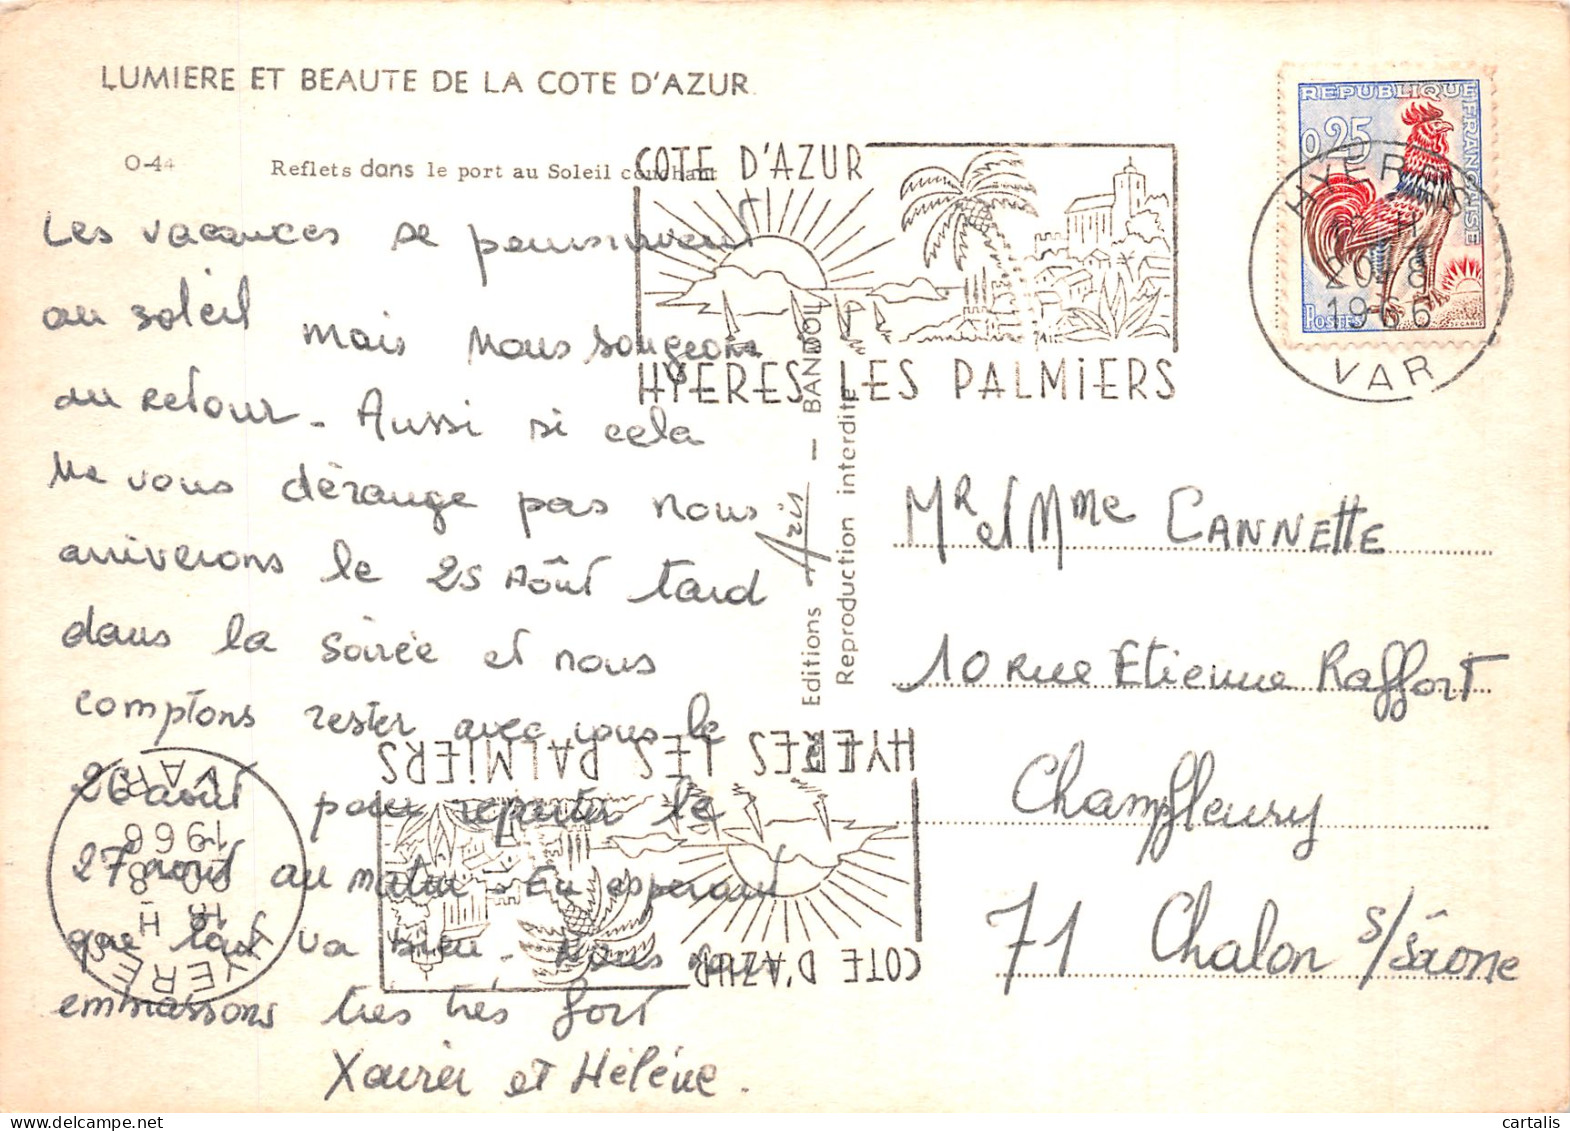 LUMIERE ET BEAUTE DE LA COTE D'AZUR
O-44 Reflets dans le port au Soleil couchant
COTE D'AZUR
HYERES LES PALMIERS
REPUBLIQUE FRANÇAISE
0,25
POSTES
HYERES
H
20-8
1966
VAR
Les vacances se poursuivent
au soleil mais nous songeons
au retour - Aussi si cela
ne vous dérange pas nous
arriverons le 25 Août tard
dans la soirée et nous
comptons rester avec vous le
26 août pour repartir le
27 août au matin. En espérant
que tout va bien. Nous vous
embrassons très très fort
Xavier et Hélène.
Editions Aris - BANDOL
Reproduction interdite
Mr et Mme CANNETTE
10 rue Etienne Raffort
Champfleury
71 Chalon s/Saône
HYERES LES PALMIERS
COTE D'AZUR
HYERES
18 H
20-8
1966
VAR
cartalis
delcampe.net